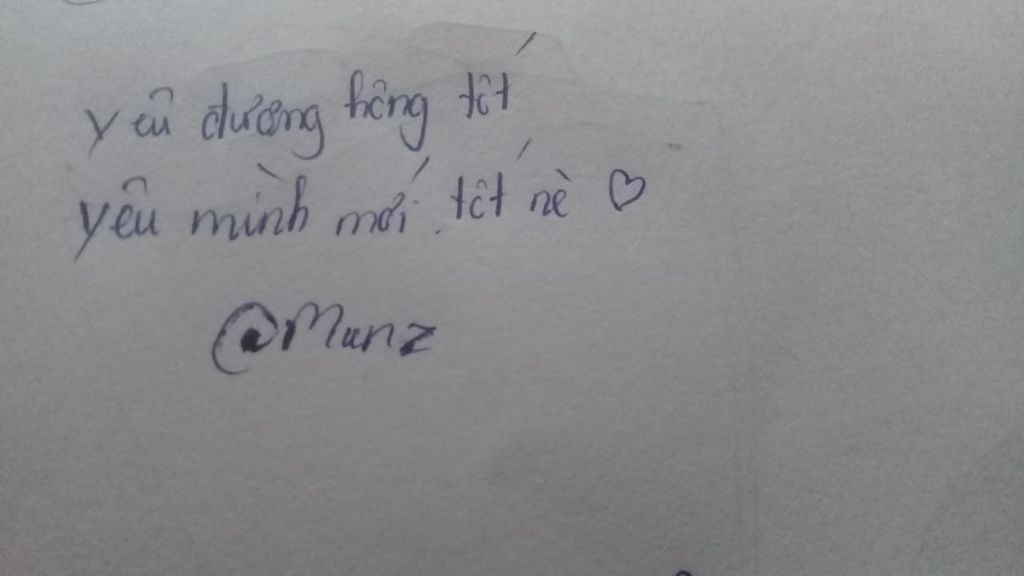 yêu đương hông tốt
yêu mình mới tốt nè ♡
@Munz